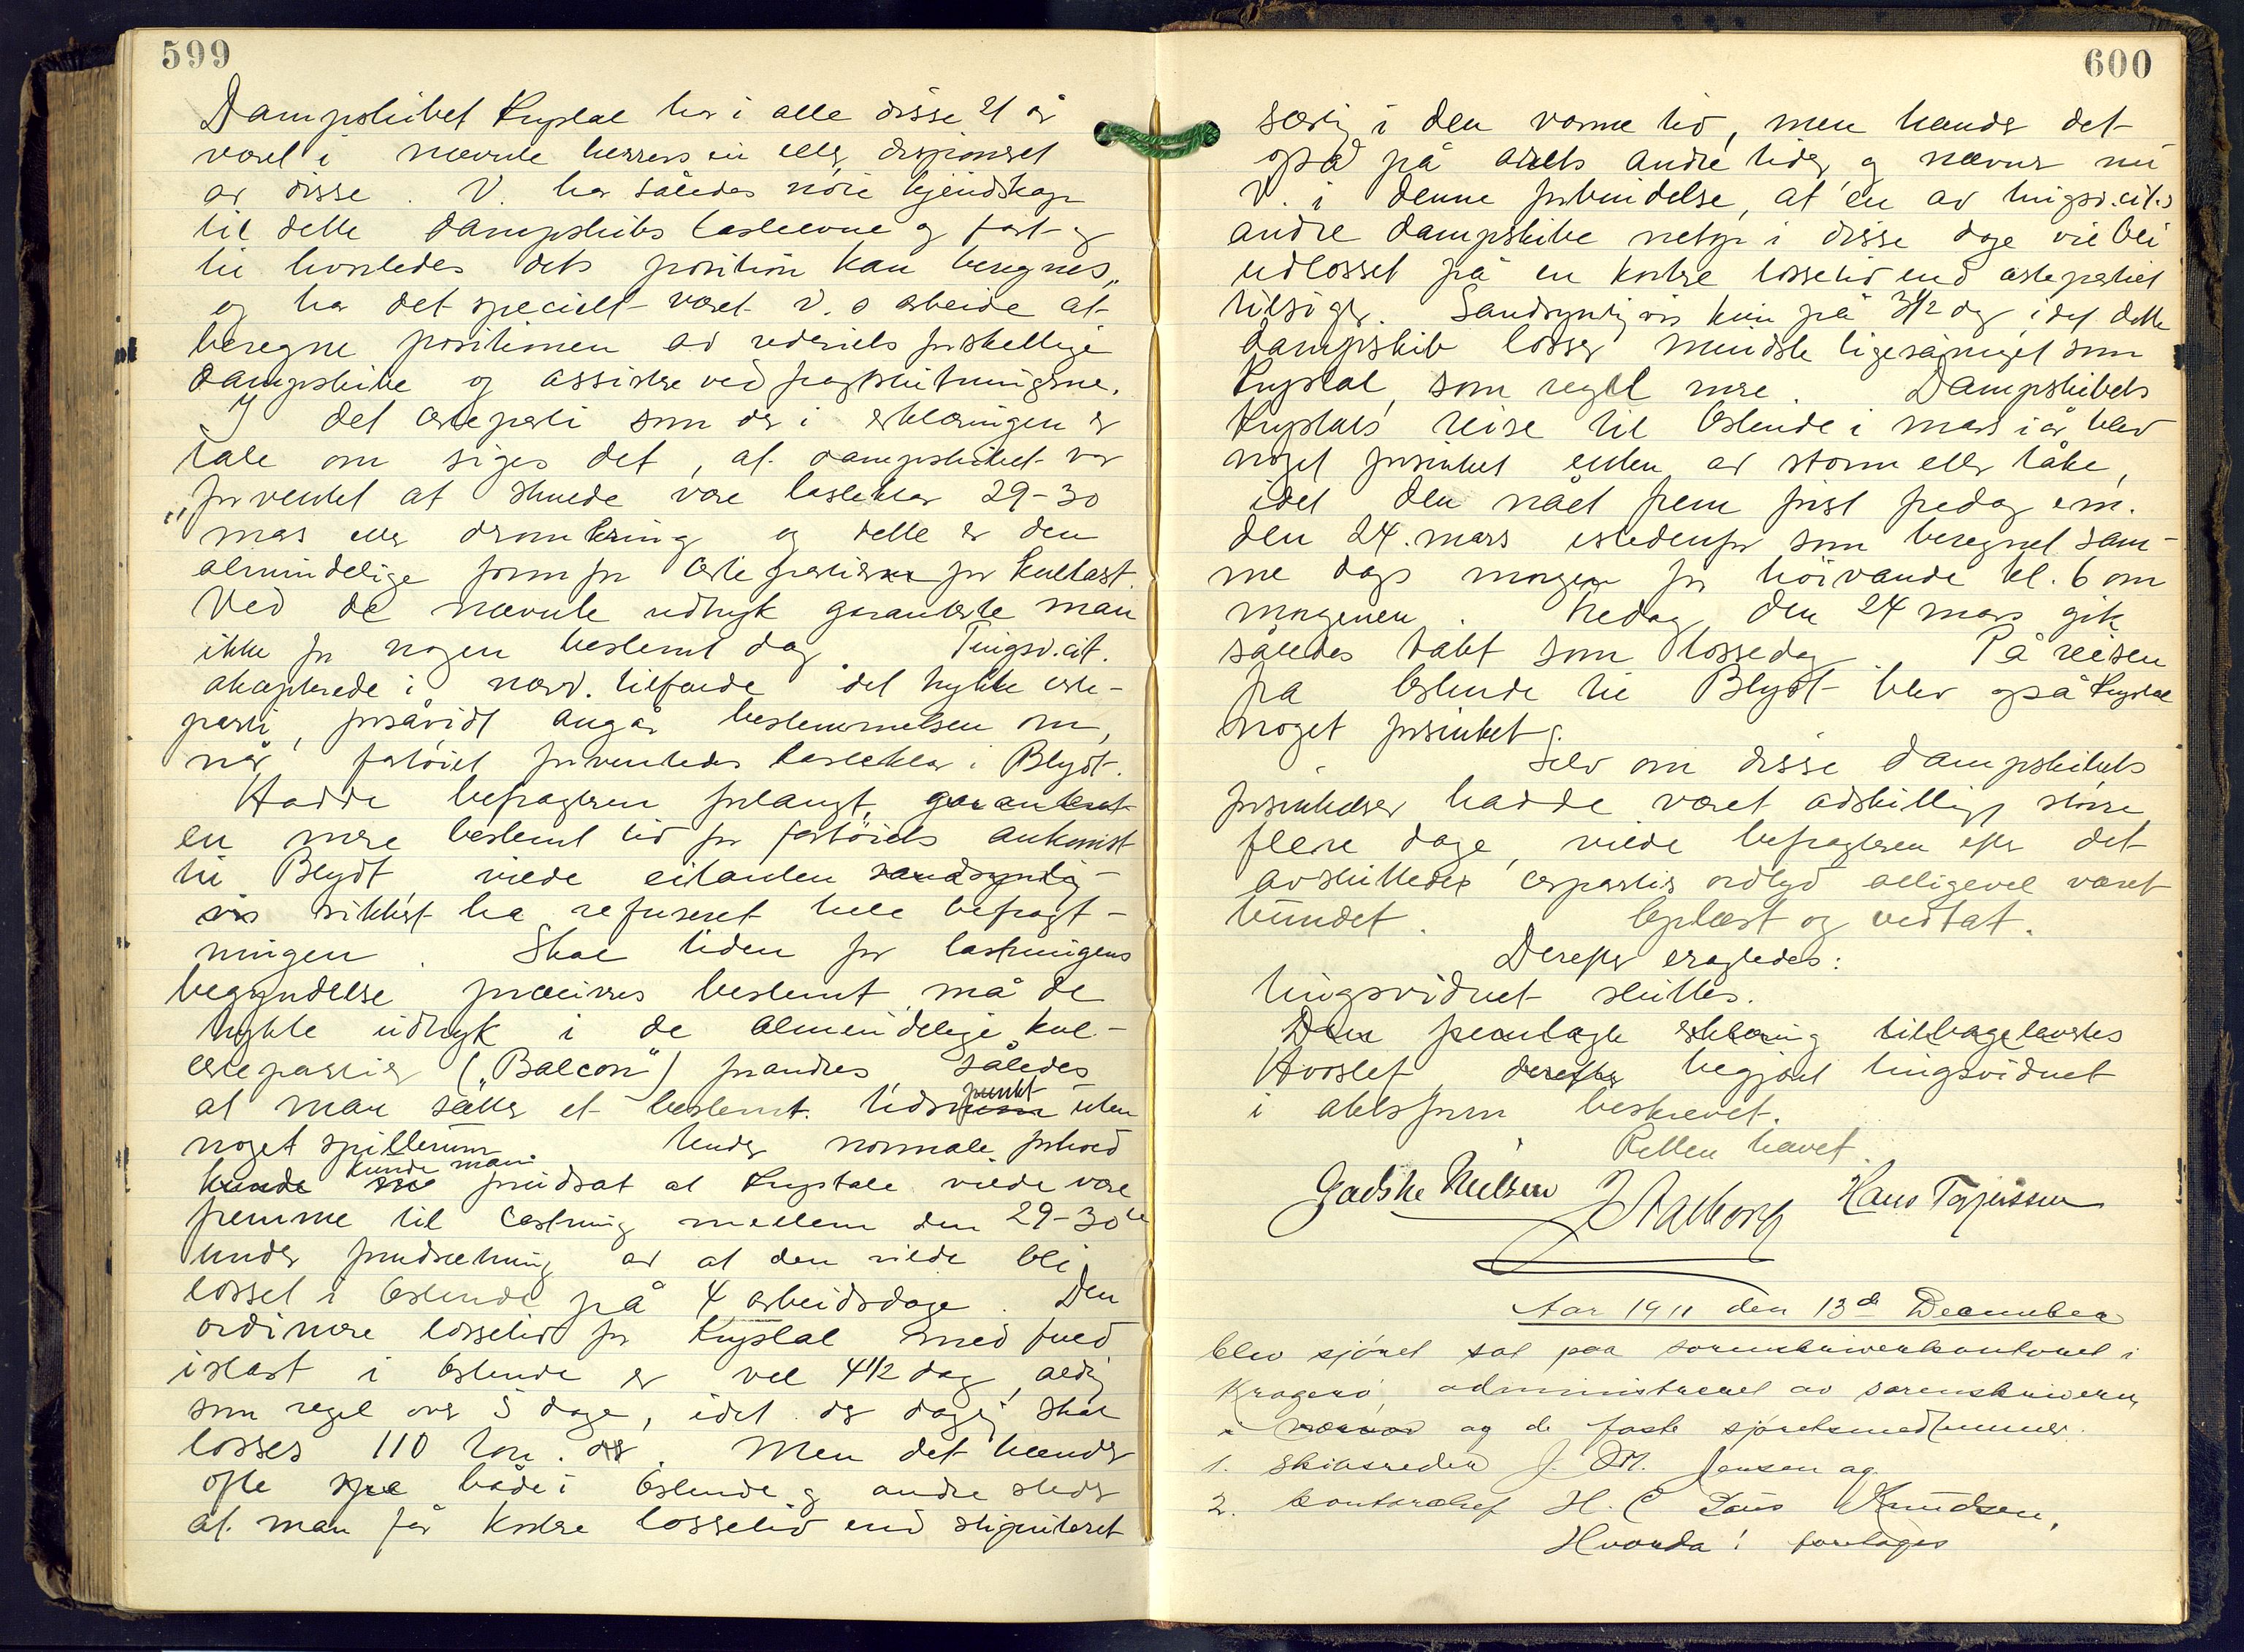 599
Dampskibet Krystal har i alle disse 21 år
været i nævnte herrers eie eller disponeret
av disse. V. har således nöie kjendskap
til dette dampskibs lasteevne og fart og
til hvorledes dets position kan beregnes,
og har det specielt været V.s arbeide at
beregne positionen av rederiets forskellige
dampskibe og assistere ved fragtslutningerne.
I det certeparti som der i erklæringen er
tale om siges det, at dampskibet var
"forventet at skulde være lasteklar 29-30
mars eller deromkring og dette er den
almindelige form for certepartier for kullast.
Ved de nævnte udtryk garanterte man
ikke for nogen bestemt dag. Tingsv.cit.
akcepterede i nærv. tilfælde det trykte certe-
parti, forsåvidt angår bestemmelsen om,
når fartöiet forventedes lasteklar i Blyth.
Hadde befragteren forlangt garanteret
en mere bestemt tid for fartöiets ankomst
til Blyth, vilde citanten sandsynlig-
vis sikkert ha refuseret hele befragt-
ningen. Skal tiden for lastningens
begyndelse præcisres bestemt må de
trykte udtryk i de almindelige kul-
certepartier ("Balcon") forandres således
at man sætter et bestemt tidspunkt uten
noget spillerum. Under normale forhold
kunde man forudsat at Krystal vilde være
fremme til lastning mellem den 29-30te
under forudsætning av at den vilde bli
losset i Ostende på 4 arbeidsdage. Den
ordinære lossetid for Krystal med fuld
islast i Ostende er vel 4 1/2 dag, aldrig
som regel over 5 dage, idet der daglig skal
losses 110 ton. Men det hænder
ofte både i Ostende og andre steder
at man får kortere lossetid end stipuleret
600
særlig i den varme tid, men hænder det
også på årets andre tider, og nævner nu
V. i denne forbindelse, at en av tingsv.cit.s
andre dampskibe netop i disse dage vil bli
udlosset på en kortere lossetid end certepartiet
tilsiger. Sandsynligvis kun på 3 1/2 dag, idet dette
dampskib losser mindst ligesåmeget som
Krystal, som regel mere. Dampskibets
Krystals reise til Ostende i mars i år blev
noget forsinket enten av storm eller tåke,
idet den nået frem först fredag em.
den 24. mars istedenfor som beregnet sam-
me dags morgen for höivande kl. 6 om
morgenen. Fredag den 24 mars gik
således tabt som lossedag. På reisen
fra Ostende til Blyth blev også Krystal
noget forsinket.
Selv om disse dampskibets
forsinkelser hadde været adskilligt större,
flere dage, vilde befragteren efter det
avsluttede certepartis ordlyd alligevel været
bundet. Oplæst og vedtat.
Derefter eragtedes:
Tingsvidnet sluttes.
Den fremlagte erklæring tilbageleveres
Horslef, derefter begjæret tingsvidnet
i aktsform beskrevet.
Retten hævet.
Gadske Nielsen J Aalborg Hans Terjussen
Aar 1911 den 13de December
blev sjöret sat paa sorenskriverkontoret i
Kragerö, administreret av sorenskriveren
og de faste sjöretsmedlemmer.
1. skibsreder J. M. Jensen og
2. kontorchef H. C Paus Knudsen,
Hvorda! foretages